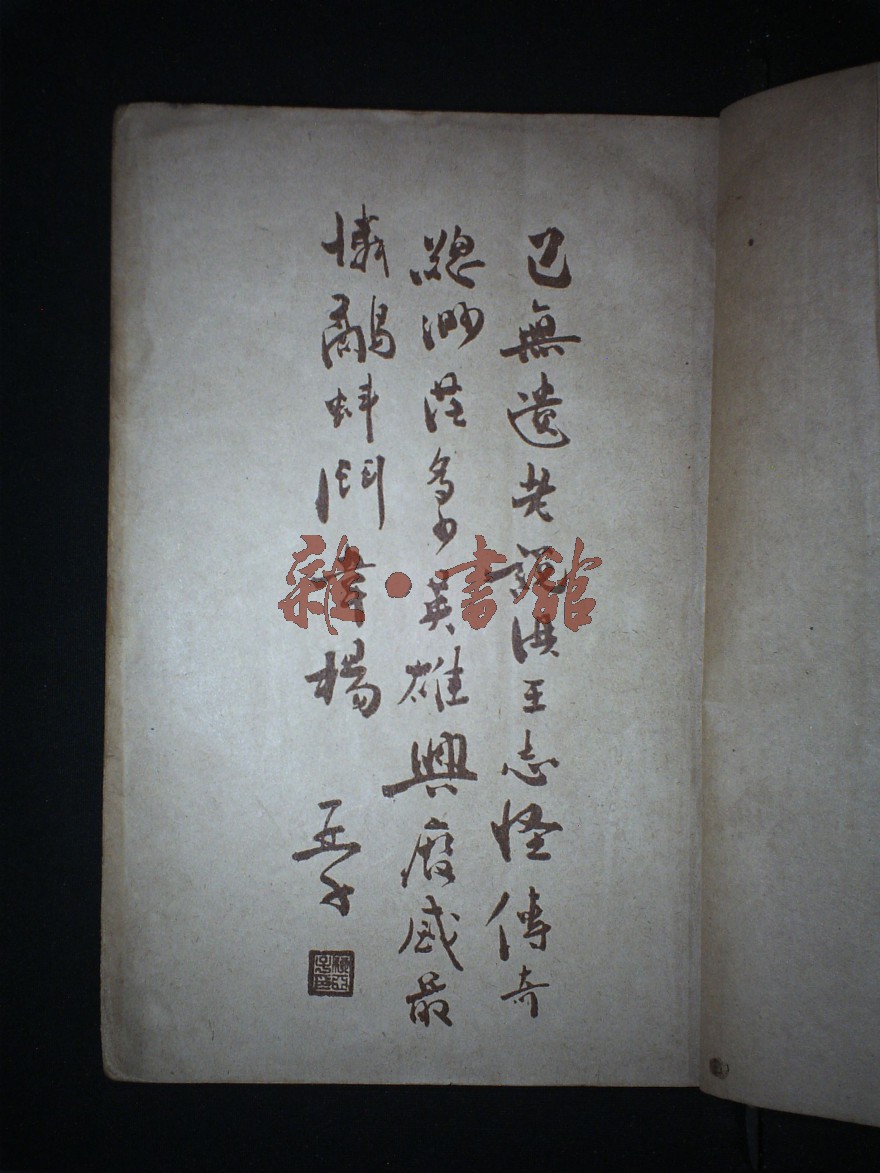 已無遺老說洪王志怪傳奇
總渺茫多少英雄興廢感最
憐鷸蚌鬥韋楊
亞子
雜·書館